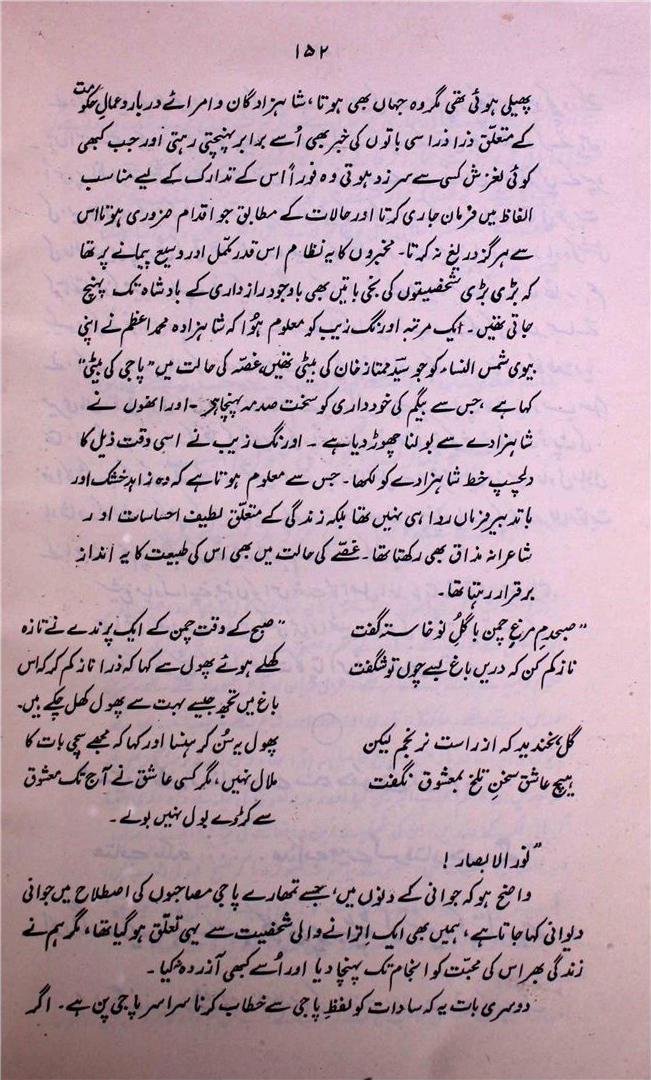 ۱۵۲
پھیلی ہوئی تھی مگر وہ جہاں بھی ہوتا، شاہزادگان و امرائے دربار و عمالِ حکومت
کے متعلق ذرا ذرا سی باتوں کی خبر بھی اُسے برابر پہنچتی رہتی اور جب کبھی
کوئی لغزش کسی سے سرزد ہوتی وہ فوراً اُس کے تدارک کے لیے مناسب
الفاظ میں فرمان جاری کرتا اور حالات کے مطابق جو اقدام ضروری ہوتا اس
سے ہرگز دریغ نہ کرتا۔ مخبروں کا یہ نظام اس قدر مکمّل اور وسیع پیمانے پر تھا
کہ بڑی بڑی شخصیتوں کی نجی باتیں بھی باوجود رازداری کے بادشاہ تک پہنچ
جاتی تھیں۔ ایک مرتبہ اورنگ زیب کو معلوم ہُوا کہ شاہزادہ محمد اعظم نے اپنی
بیوی شمس النساء کو جو سیّد ممتاز خان کی بیٹی تھیں غصّہ کی حالت میں "پاجی کی بیٹی"
کہا ہے، جس سے بیگم کی خودداری کو سخت صدمہ پہنچا ہے۔ اور انھوں نے
شاہزادے سے بولنا چھوڑ دیا ہے۔ اورنگ زیب نے اسی وقت ذیل کا
دلچسپ خط شاہزادے کو لکھا۔ جس سے معلوم ہوتا ہے کہ وہ زاہدِ خشک اور
باتدبیر فرماں روا ہی نہیں تھا بلکہ زندگی کے متعلّق لطیف احساسات اور
شاعرانہ مذاق بھی رکھتا تھا۔ غصّے کی حالت میں بھی اس کی طبیعت کا یہ انداز
برقرار رہتا تھا۔
"صبحدم مرغِ چمن با گلِ نو خاستہ گفت
ناز کم کن کہ دریں باغ بسے چوں تو شگفت
گل بخندید کہ از راست نرنجم لیکن
ہیچ عاشق سخنِ تلخ بمعشوق نگفت
"صبح کے وقت چمن کے ایک پرندے نے تازہ
کھلے ہوئے پھول سے کہا کہ ذرا ناز کم کر کہ اس
باغ میں تجھ جیسے بہت سے پھول کھل چکے ہیں۔
پھول یہ سُن کر ہنسا اور کہا کہ مجھے سچی بات کا
ملال نہیں، مگر کسی عاشق نے آج تک معشوق
سے کڑوے بول نہیں بولے۔
"نور الابصار!
واضح ہو کہ جوانی کے دنوں میں، جسے تمھارے پاجی مصاحبوں کی اصطلاح میں جوانی
دیوانی کہا جاتا ہے، ہمیں بھی ایک اِترانے والی شخصیت سے یہی تعلّق ہو گیا تھا، مگر ہم نے
زندگی بھر اس کی محبت کو انجام تک پہنچا دیا اور اُسے کبھی آزردہ نہ کیا۔
دوسری بات یہ کہ سادات کو لفظِ پاجی سے خطاب کرنا سراسر پاجی پن ہے۔ اگر